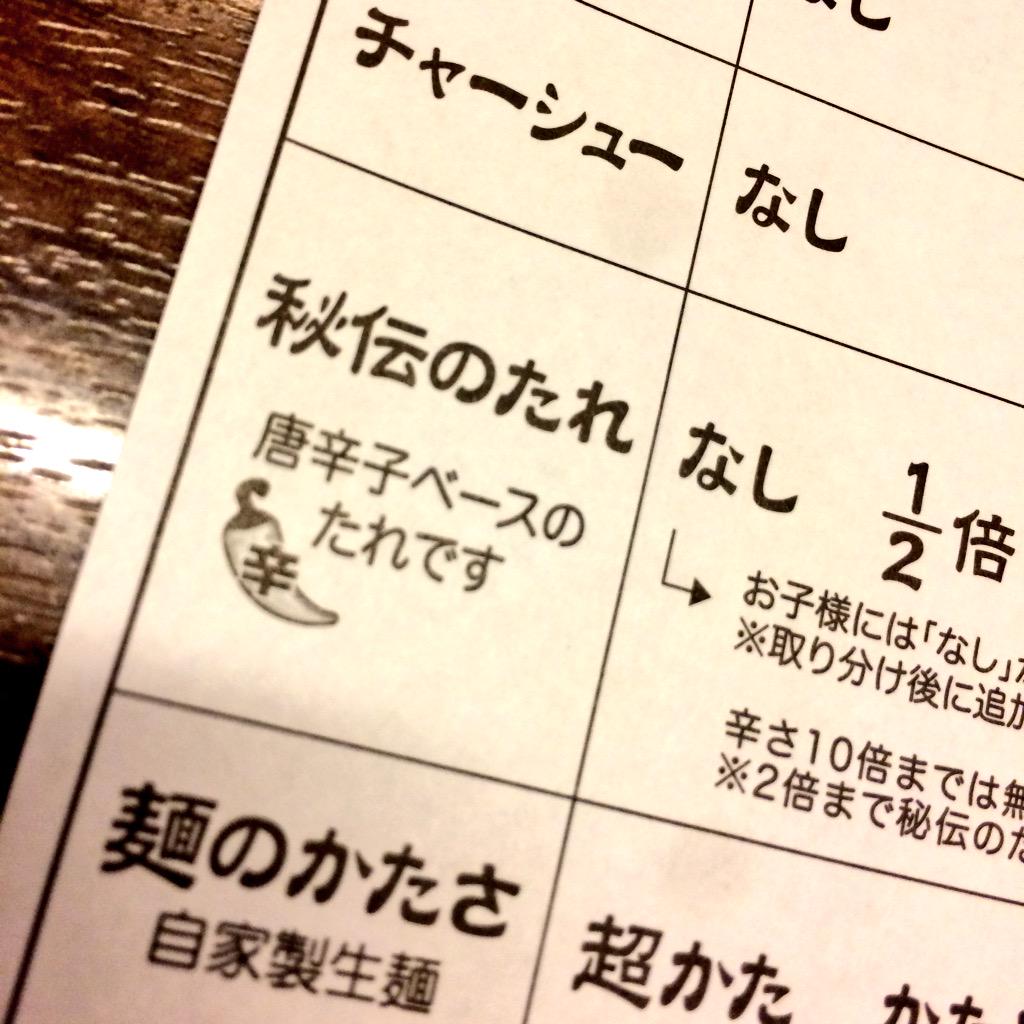 なし
チャーシュー なし
秘伝のたれ なし 1/2倍
唐辛子ベースの
たれです
辛
お子様には「なし」
※取り分け後に追
辛さ10倍までは無
※2倍まで秘伝の
麺のかたさ 超かた かた
自家製生麺